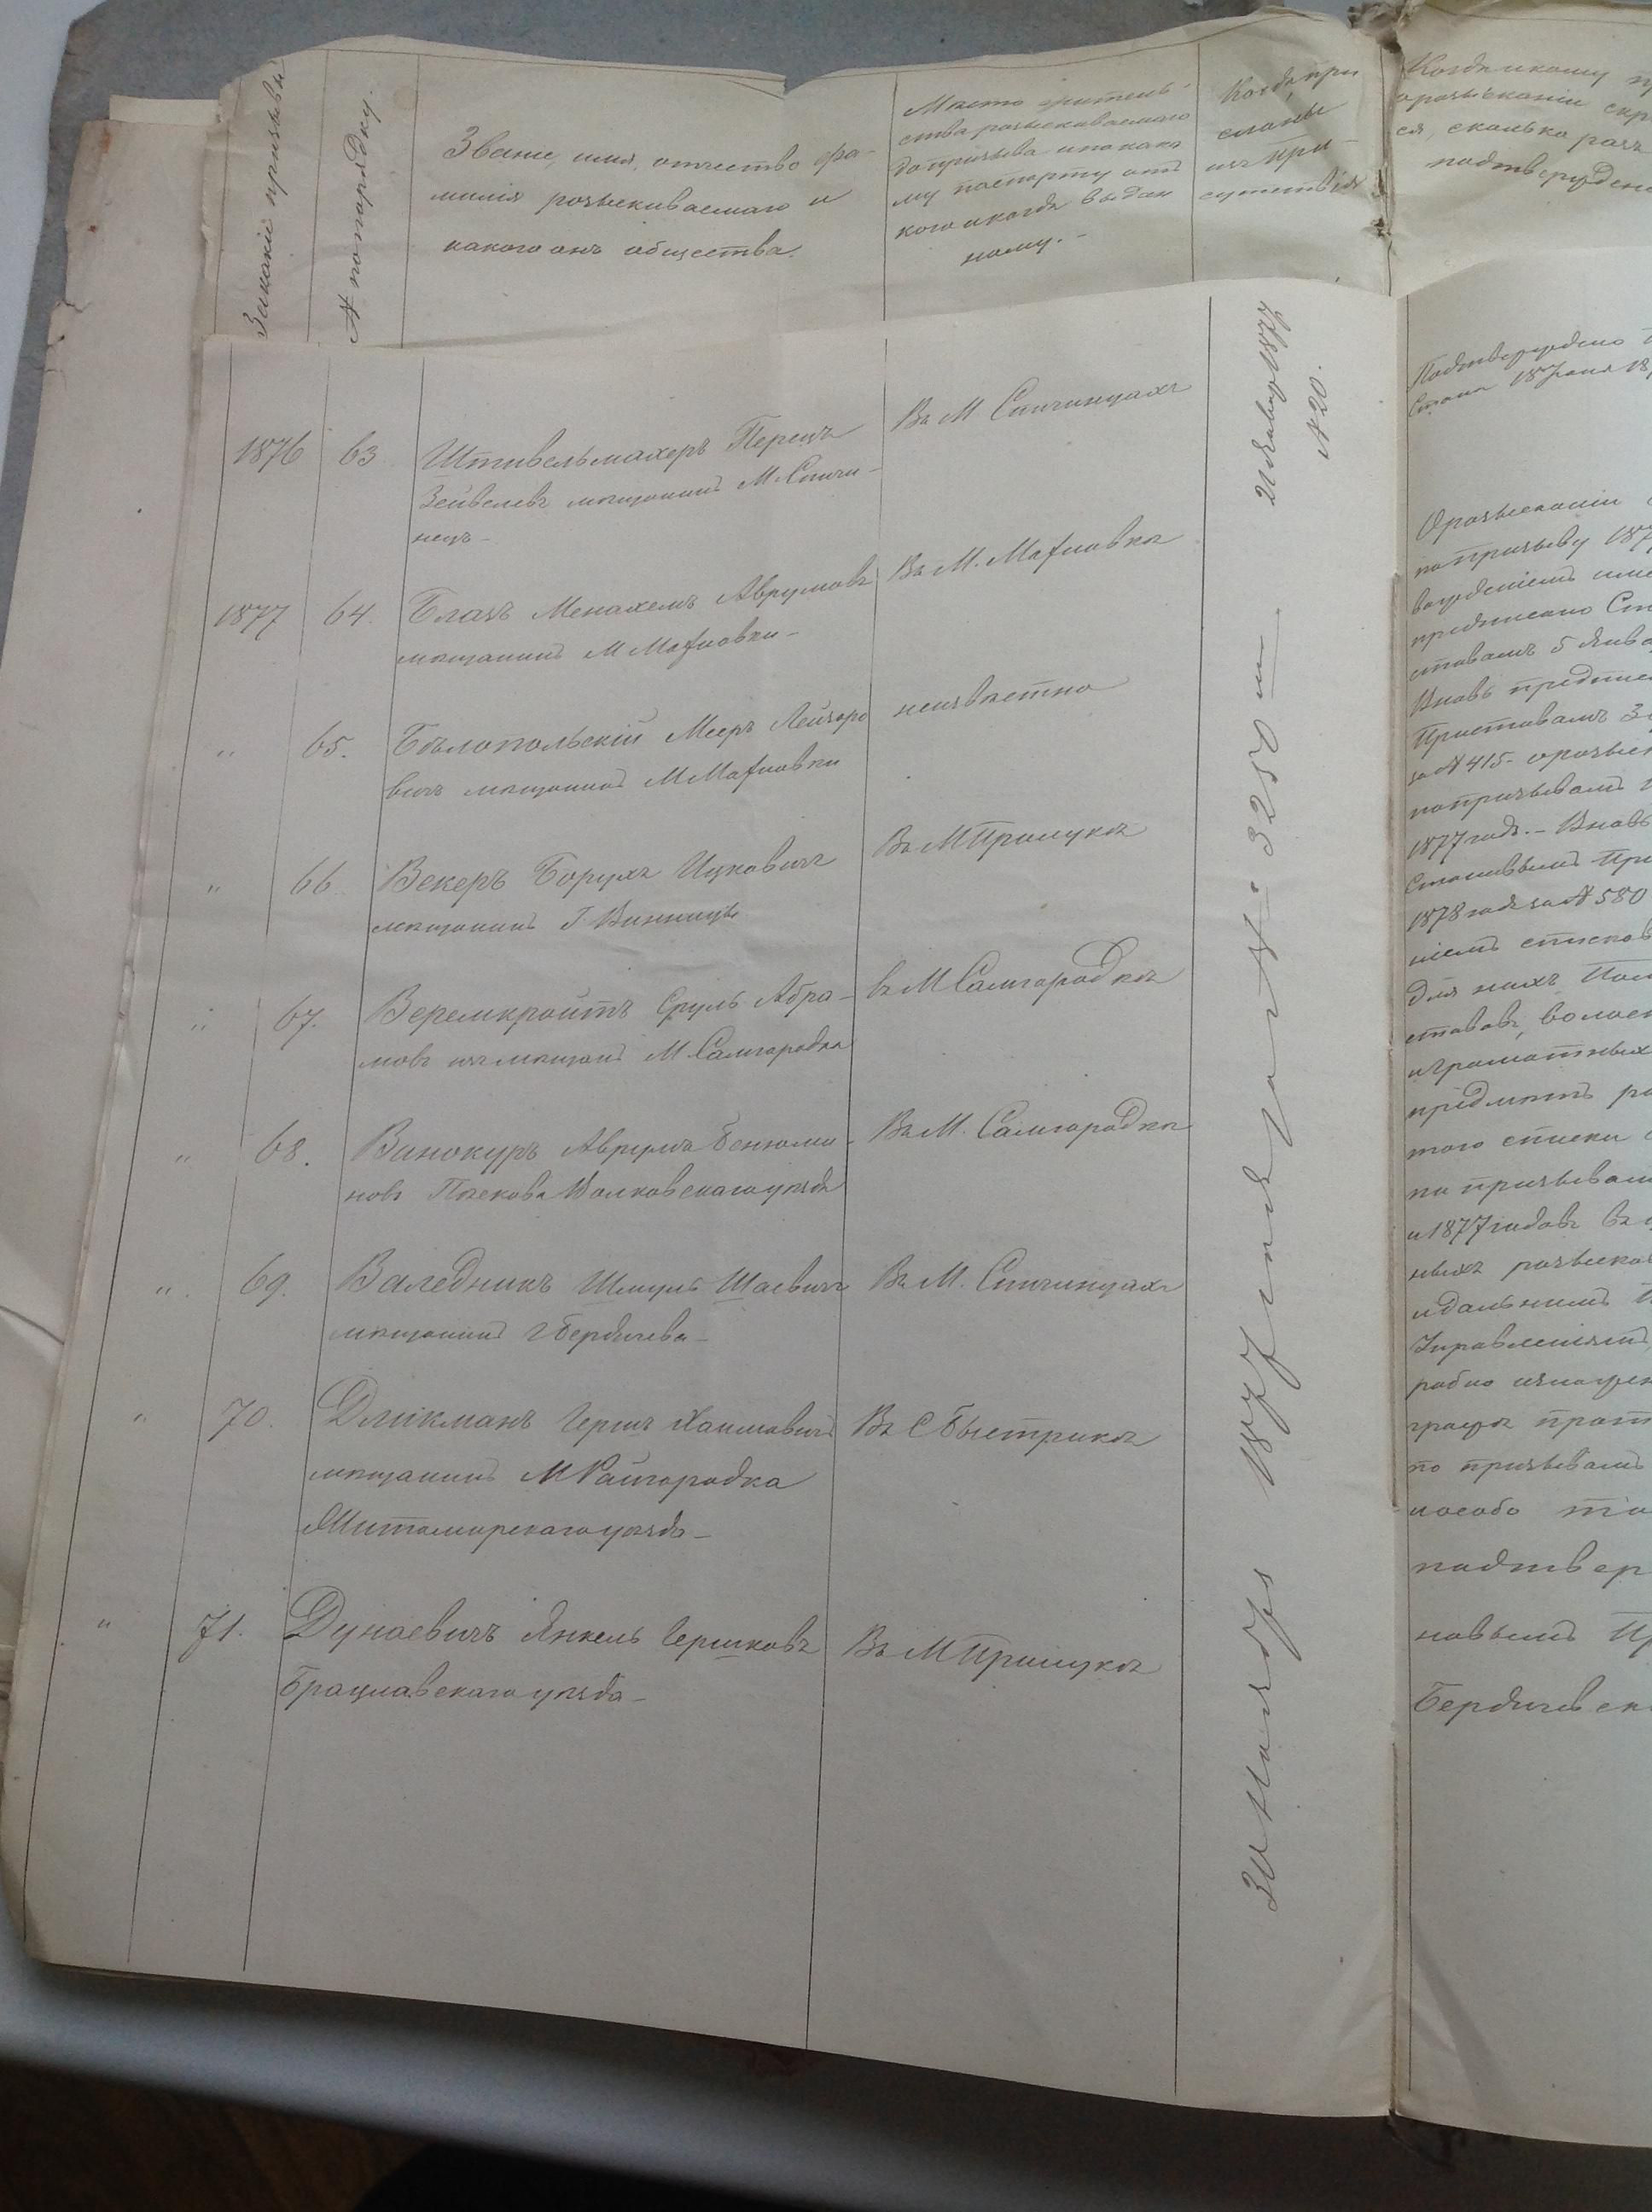 За какiе призывы
№ по порядку.
Званiе, имя, отчество фа-
милiя розыскиваемаго и
какого онъ общества.
Место житель-
ства розыскиваемаго
до призыва и по како
му паспорту отъ
кого и когда выдан
ному.-
Когда при
сланы
изъ При-
сутствiя
Когда и кому
о розысканiи
ся, сколько разъ
1876
63
Штивельмахеръ Перецъ
Зейвелевъ мѣщанинъ М. Спичи-
нецъ-
Въ М Спичинцахъ
1877
64.
Блазъ Менахемъ Аврумовъ
мѣщанинъ М Махновки-
Въ М. Махновкѣ
"
65.
Бѣлопольскiй Мееръ Лейзеро
вичъ мѣщанинъ М Махновки
неизвѣстно
"
66
Векеръ Борухъ Ицковичъ
мѣщанинъ Г. Винницы
Въ М Прилукѣ
"
67.
Веремкройтъ Сруль Абра-
мовъ изъ мѣщанъ М. Самгородка
въ М Самгородкѣ
"
68.
Винокуръ Аврумъ Бенюми-
новъ Пескова Волковскаго уѣзда
Въ М. Самгородкѣ
".
69.
Валедникъ Шмуль Шаевичъ
мѣщанинъ г Бердичева-
Въ М. Спичинцахъ
"
70.
Дликманъ Гершъ Хаимовичъ
мѣщанинъ М Райгородка
Житомирскаго уѣзда-
Въ С Быстрикѣ
"
71.
Дунаевичъ Янкель Гершковъ
Брацлавскаго уѣзда-
Въ М Прилукѣ
30 Ноября 1877 года за № 3250
21 Января 1877
№ 20.
Подтверждено
Стана 18
О розысканiи
по призыву 187
предписано
ставамъ 5 Янва
Вновь предпис
Приставамъ
за № 415- о розыск
по призывамъ
1877 года.- Вновь
Становымъ При
1878 года за № 580
нiемъ списков
для нихъ
ставовъ, волос
и грамотныхъ
предметъ
того списки
по призывам
и 1877 годовъ въ
ныхъ розыско
и дальнимъ
Управленiямъ
графѣ
по призывамъ
и особо
подтвер
новымъ
Бердичевск